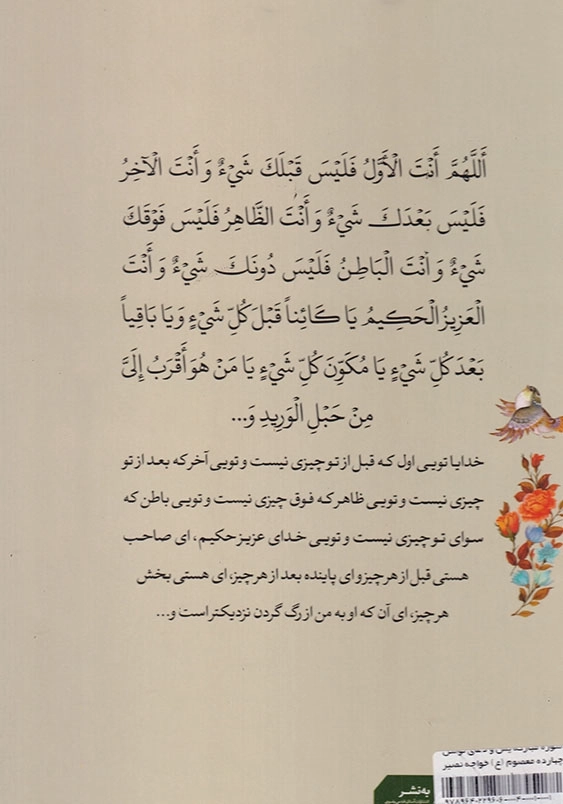 أَللَّهُمَّ أَنْتَ الْأَوَّلُ فَلَيْسَ قَبْلَكَ شَيْءٌ وَ أَنْتَ الْآخِرُ
فَلَيْسَ بَعْدَكَ شَيْءٌ وَ أَنْتَ الظَّاهِرُ فَلَيْسَ فَوْقَكَ
شَيْءٌ وَ أَنْتَ الْبَاطِنُ فَلَيْسَ دُونَكَ شَيْءٌ وَ أَنْتَ
الْعَزِيزُ الْحَكِيمُ يَا كَائِناً قَبْلَ كُلِّ شَيْءٍ وَ يَا بَاقِياً
بَعْدَ كُلِّ شَيْءٍ يَا مُكَوِّنَ كُلِّ شَيْءٍ يَا مَنْ هُوَ أَقْرَبُ إِلَيَّ
مِنْ حَبْلِ الْوَرِيدِ وَ...
خدایا تویی اول که قبل از تو چیزی نیست و تویی آخر که بعد از تو
چیزی نیست و تویی ظاهر که فوق چیزی نیست و تویی باطن که
سوای تو چیزی نیست و تویی خدای عزیز حکیم، ای صاحب
هستی قبل از هر چیز و ای پاینده بعد از هر چیز، ای هستی بخش
هر چیز، ای آن که او به من از رگ گردن نزدیکتر است و...
چهارده معصوم (ع) خواجه نصیر
به‌نشر